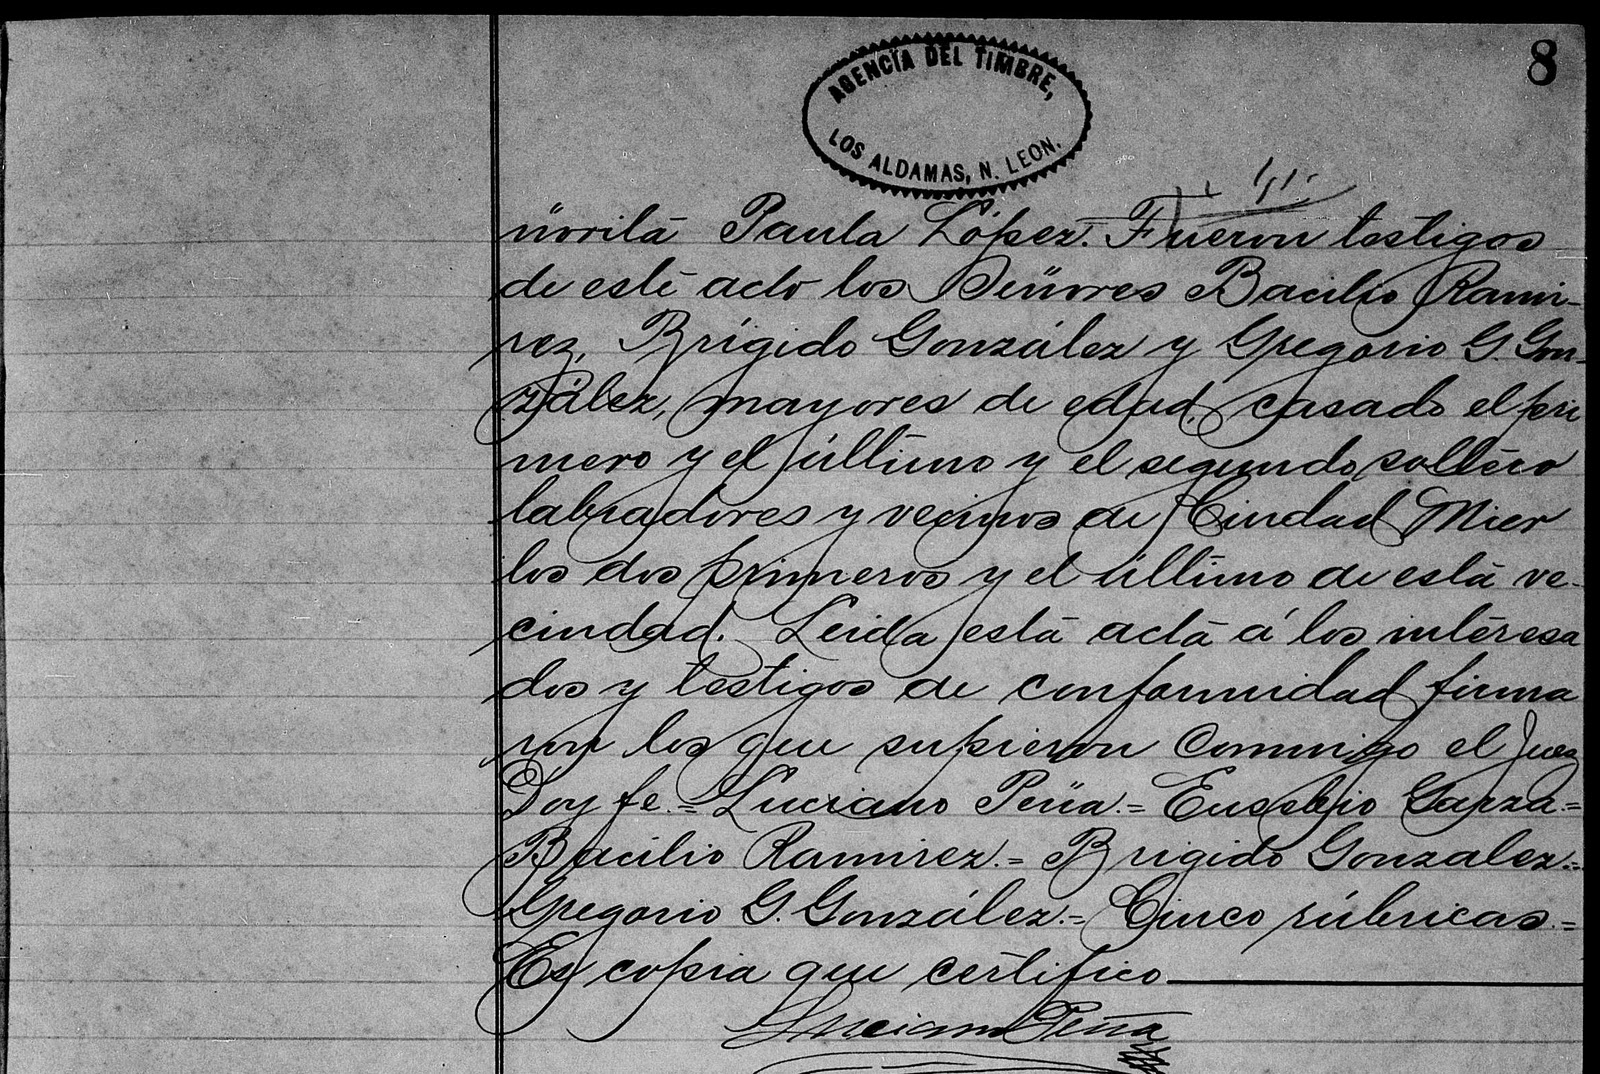 8
AGENCIA DEL TIMBRE,
LOS ALDAMAS, N. LEON.
ñorita Paula López. Fueron testigos
de este acto los Señores Bacilio Rami-
rez, Brígido González y Gregorio G. Gon-
zález, mayores de edad, casado el pri
mero y el último y el segundo soltero
labradores y vecinos de Ciudad Mier
los dos primeros y el último de está ve-
cindad. Leida está actà á los interesa
dos y testigos de conformidad firma
ron los que supieron conmigo el Juez
Doy fe.= Luciano Peña.= Eusebio Garza=
Bacilio Ramirez.= Brigido Gonzalez.=
Gregorio G. González.= Cinco rúbricas.=
Es copia que certifico
Luciano Peña